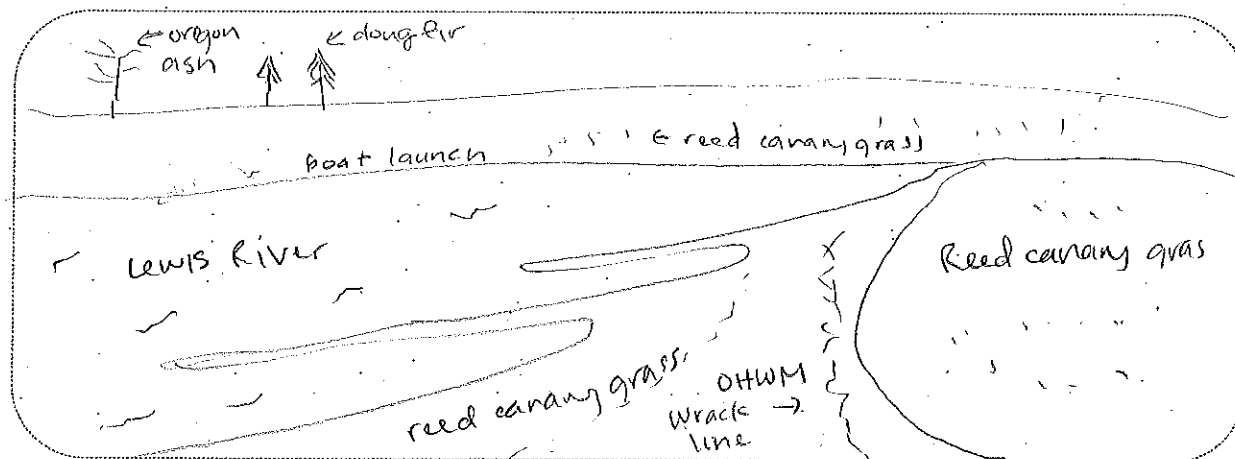 ← oregon
ash
← doug fir
boat launch
← reed canary grass
Lewis River
Reed canary gras
reed canary grass
OHWM
wrack →
line